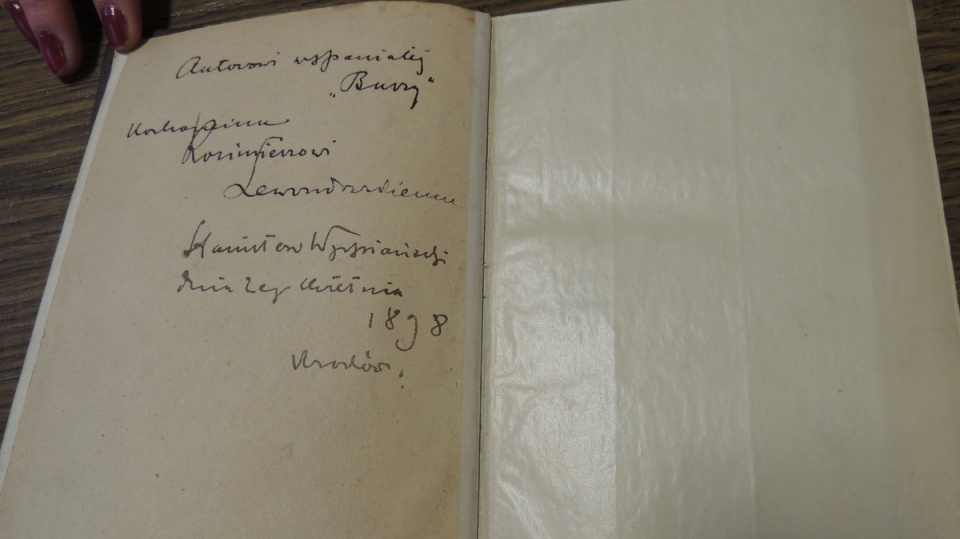 Autorowi wspaniałéj
„Burzy"
Kochanemu
Kazimierzowi
Lewandowskiemu
Stanisław Wyspiański
dnia 2go Kwietnia
1898
Kraków.